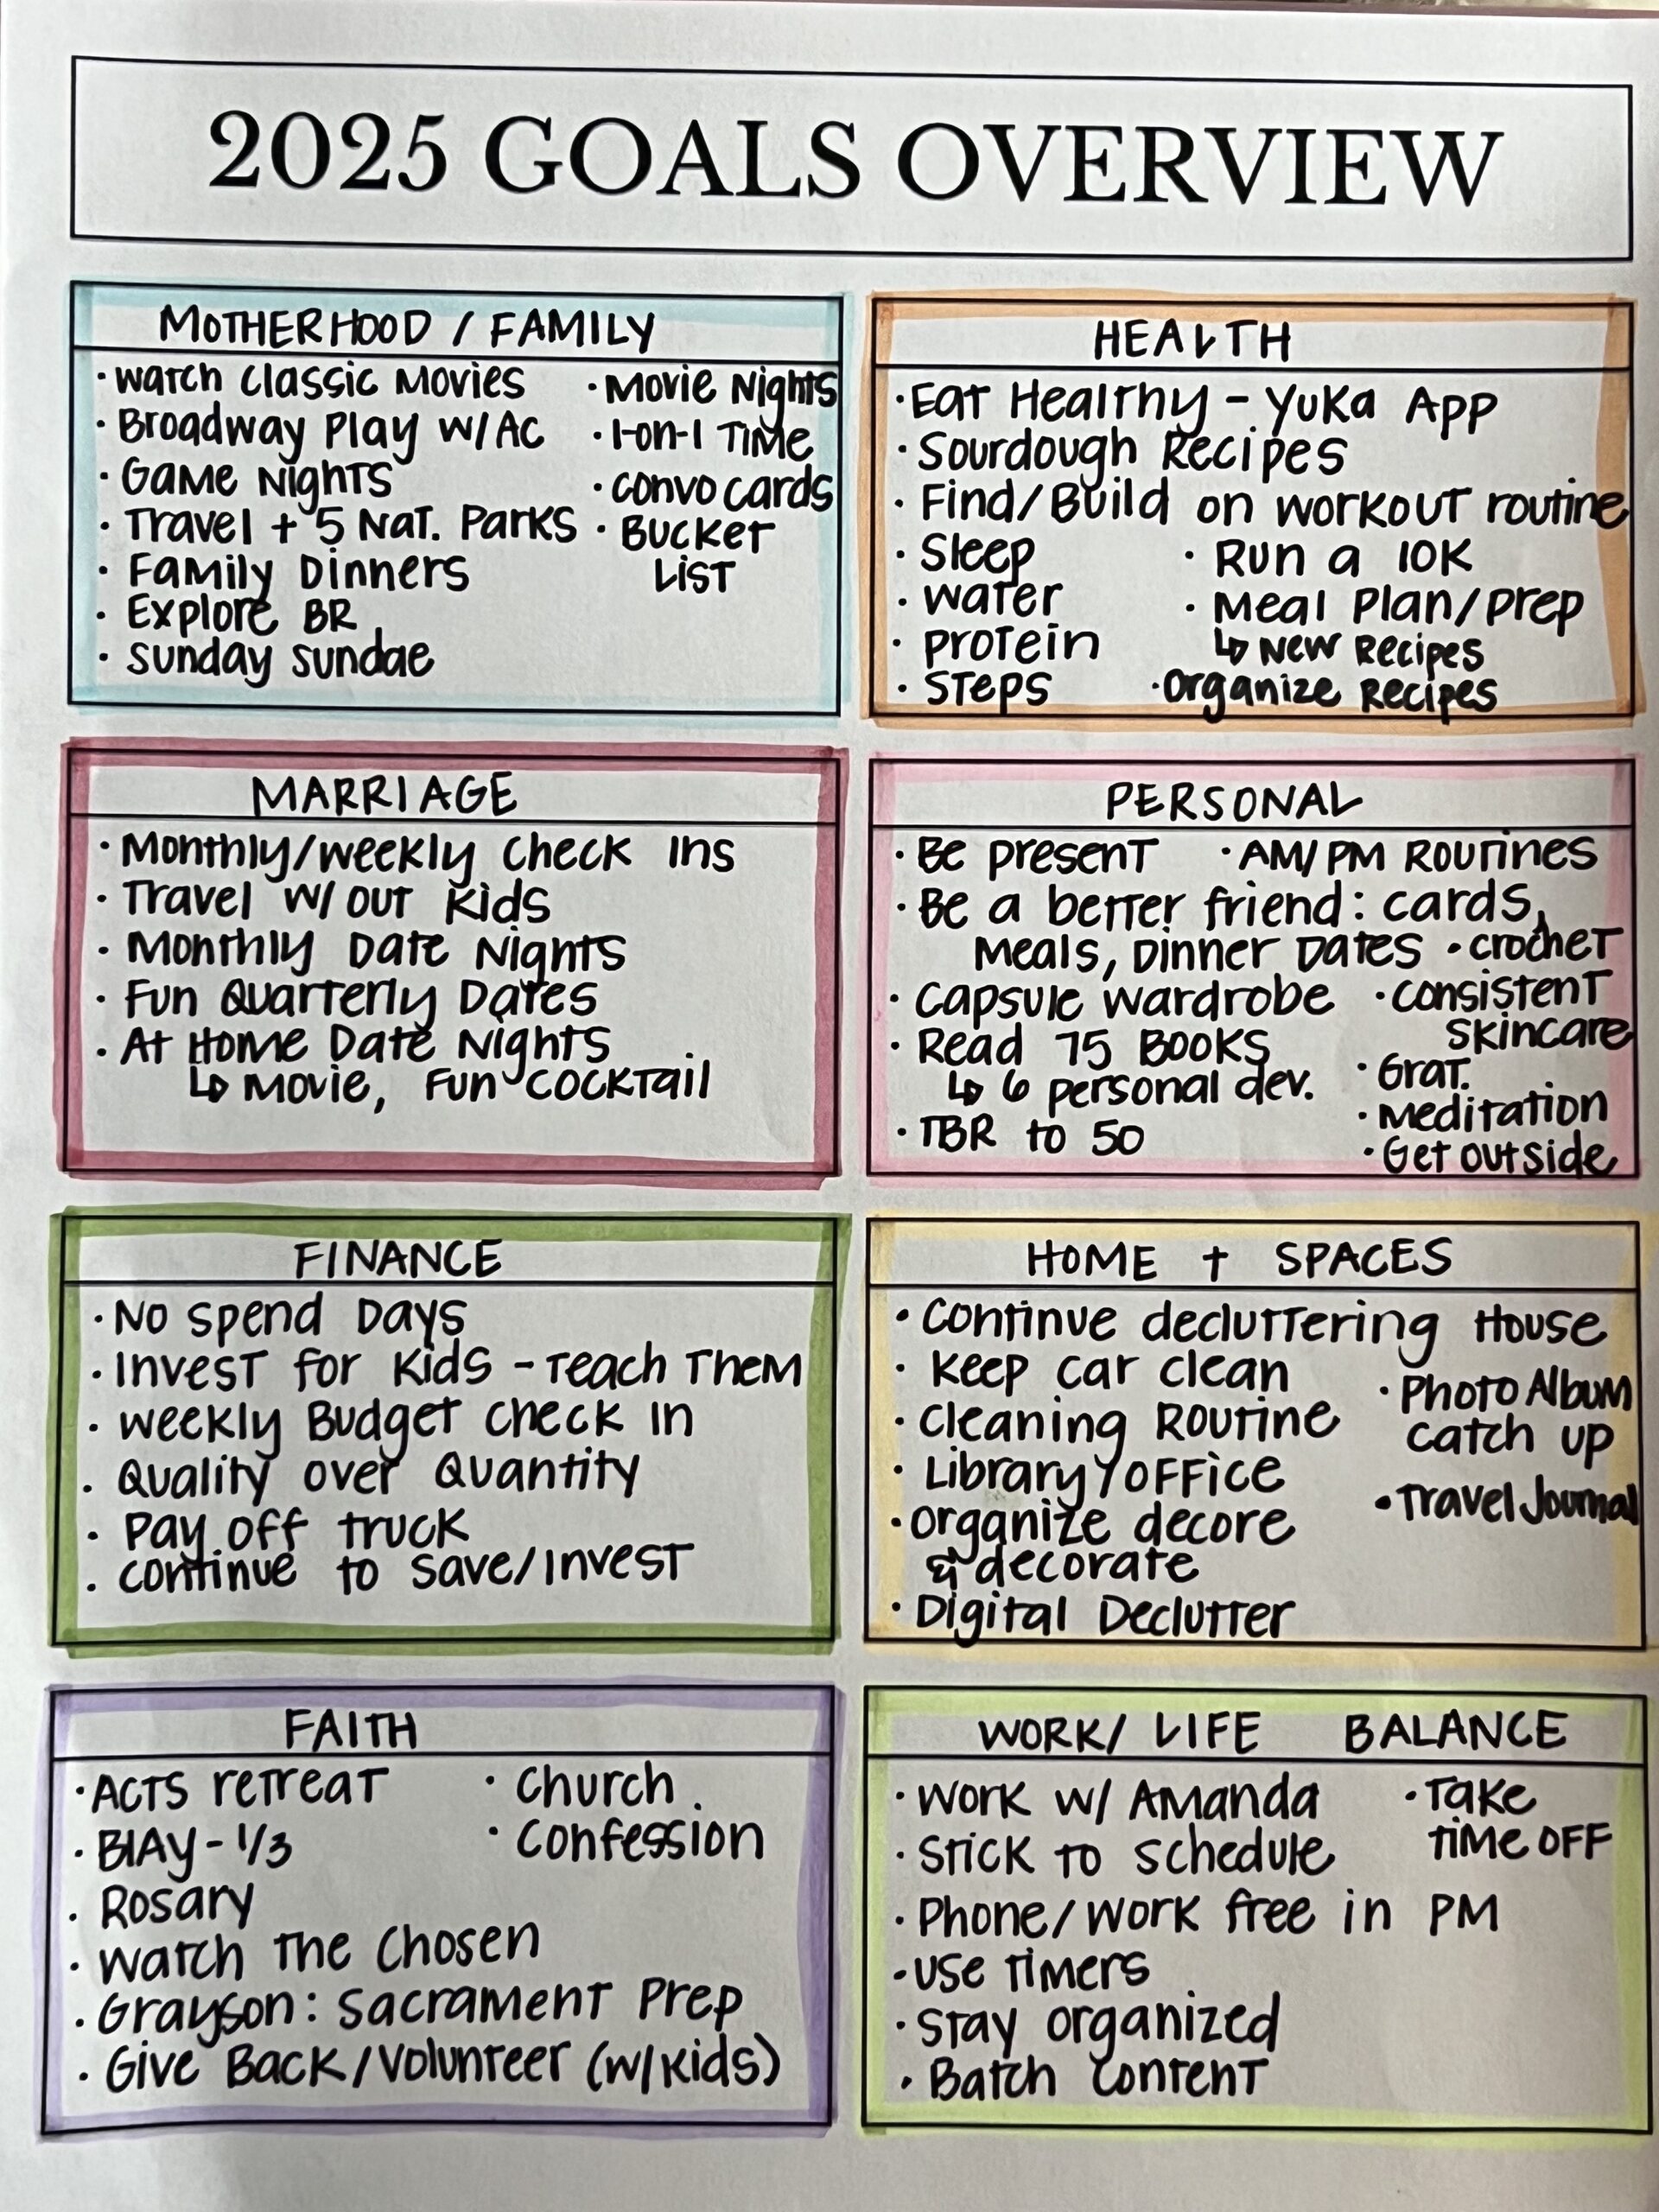 2025 GOALS OVERVIEW
MOTHERHOOD / FAMILY
· Watch Classic Movies
· Broadway Play w/ AC
· Game Nights
· Travel + 5 Nat. Parks
· Family Dinners
· Explore BR
· Sunday Sundae
· Movie Nights
· 1-on-1 Time
· Convo cards
· Bucket
List
HEALTH
· Eat Healthy - Yuka App
· Sourdough Recipes
· Find/Build on workout routine
· Sleep
· Water
· Protein
· Steps
· Run a 10K
· Meal Plan/Prep
↳ New Recipes
· Organize Recipes
MARRIAGE
· Monthly/weekly Check Ins
· Travel w/out Kids
· Monthly Date Nights
· Fun Quarterly Dates
· At Home Date Nights
↳ Movie, Fun Cocktail
PERSONAL
· Be present
· AM/PM Routines
· Be a better friend: cards,
Meals, Dinner Dates
· Capsule Wardrobe
· Read 75 Books
↳ 6 personal dev.
· TBR to 50
· Crochet
· Consistent
Skincare
· Grat.
· Meditation
· Get outside
FINANCE
· No Spend Days
· Invest for Kids - Teach Them
· Weekly Budget Check In
· Quality over Quantity
· Pay off truck
· Continue to save/Invest
HOME + SPACES
· Continue decluttering House
· Keep car clean
· Cleaning Routine
· Library/Office
· Organize decore
& decorate
· Digital Declutter
· Photo Album
Catch up
· Travel Journal
FAITH
· ACTS retreat
· BIAY - 1/3
· Rosary
· Watch The Chosen
· Grayson: Sacrament Prep
· Give Back/Volunteer (w/Kids)
· Church
· Confession
WORK/ LIFE BALANCE
· Work w/ Amanda
· Stick to schedule
· Phone/work free in PM
· Use timers
· Stay organized
· Batch Content
· Take
time off